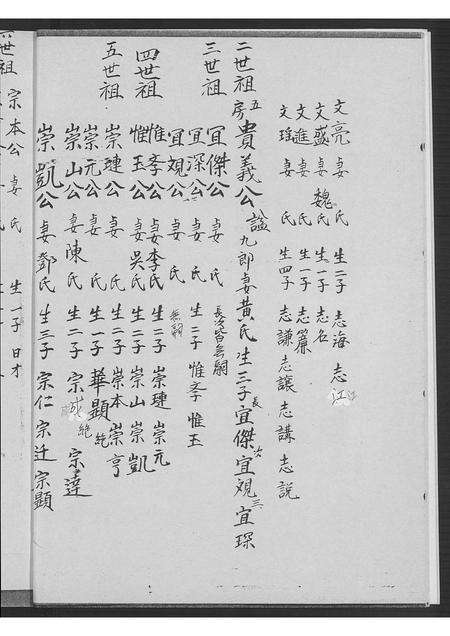 文亮 妻 氏 生二子 志海 志江
文盛 妻 魏氏 生一子 志名
文進 妻 氏 生一子 志簾
文瑤 妻 氏 生四子 志謙 志讓 志謀 志說
二世祖 五房 貴義公 諡九郎 妻黃氏 生三子 長宜傑 次宜規 三宜琛
三世祖 宜傑公 妻 氏 長次皆無嗣
宜深公 妻 氏 生二子 惟孝 惟玉
宜規公 妻 氏 無嗣
四世祖 惟孝公 妻李氏 生二子 崇璉 崇元
惟玉公 妻吳氏 生二子 崇山 崇凱
五世祖 崇璉公 妻 氏 生二子 崇本 崇亨
崇元公 妻 氏 生一子 華顯 絶
崇山公 妻陳氏 生二子 宗 絶 宗達
崇凱公 妻鄧氏 生三子 宗仁 宗迁 宗顯
六世祖 宗本公 妻 氏 生一子 日才